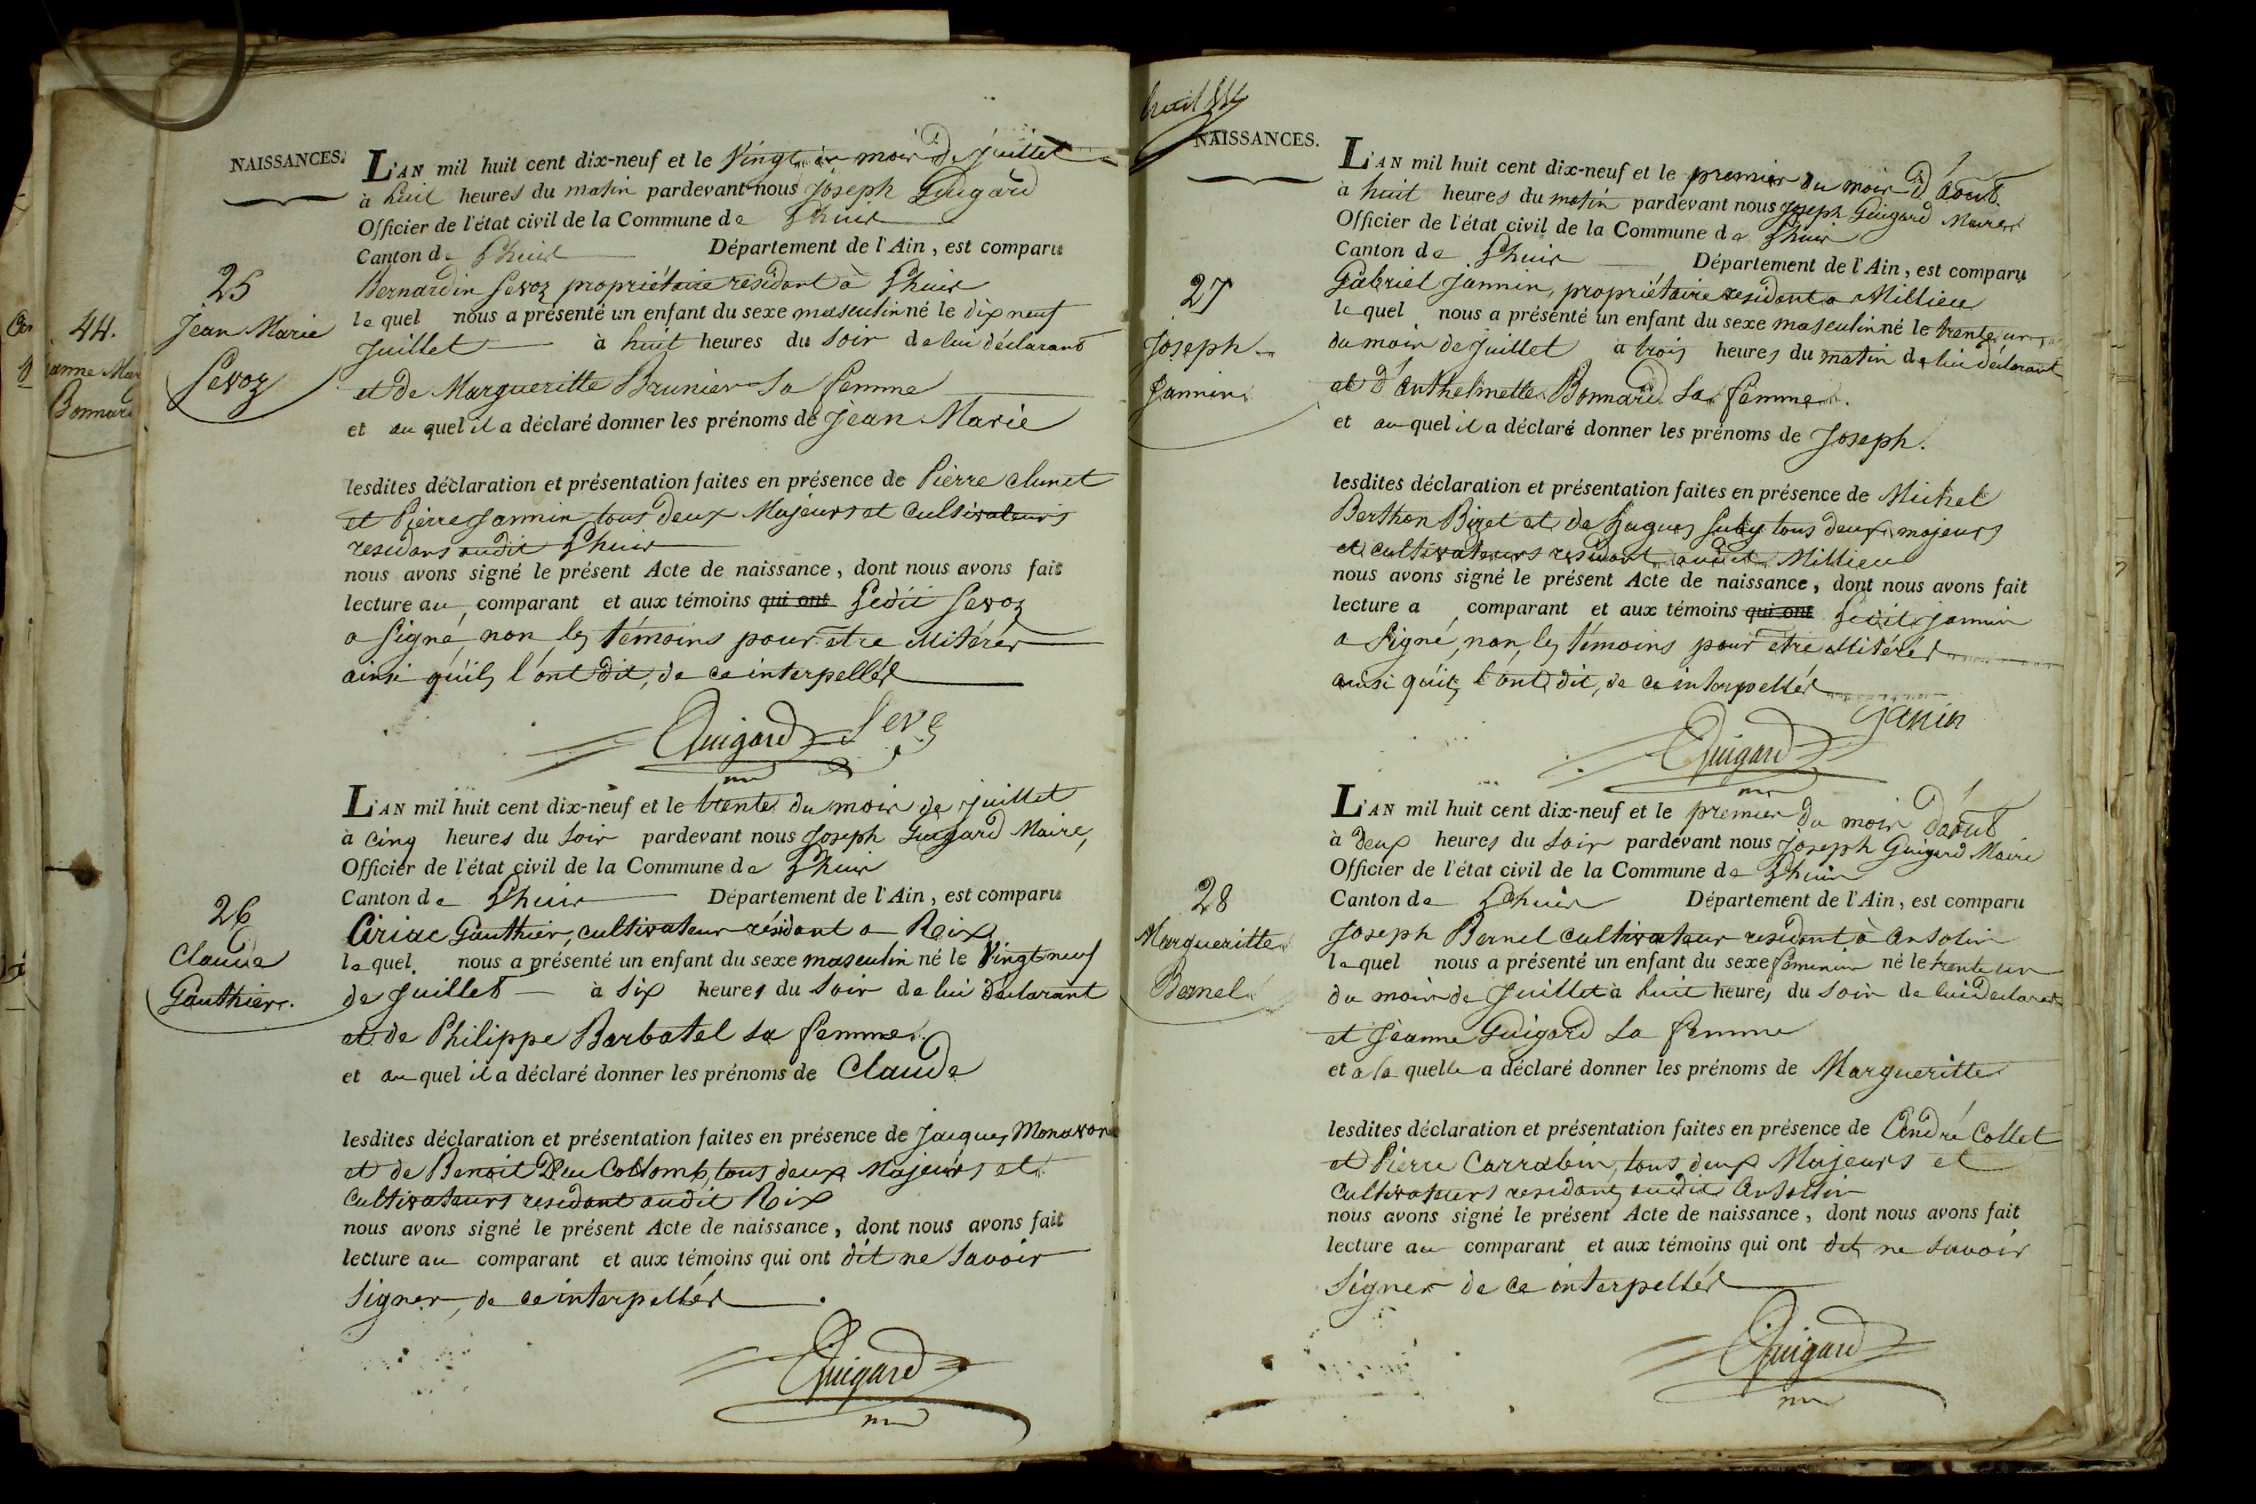 44.
anne Mar
Bonnard
NAISSANCES.
L'AN mil huit cent dix-neuf et le Vingt du mois de juillet
à huit heures du matin pardevant nous Joseph Guigard
Officier de l'état civil de la Commune de Lhuis
Canton de Lhuis Département de l'Ain, est comparu
25
Jean Marie
Sevoz
Bernardin Sevoz propriétaire résidant à Lhuis
lequel nous a présenté un enfant du sexe masculin né le dix neuf
Juillet à huit heures du soir de lui déclarant
et de Margueritte Brunier sa femme
et au quel il a déclaré donner les prénoms de Jean Marie
lesdites déclaration et présentation faites en présence de Pierre Clunet
et Pierre Jannin tous deux Majeurs et Cultivateurs
residans audit Lhuis
nous avons signé le présent Acte de naissance, dont nous avons fait
lecture au comparant et aux témoins qui ont Ledit Sevoz
a signé, non les témoins pour etre illitérés
ainsi qu'ils l'ont dit, de ce interpellés
Guigard Sevoz
L'AN mil huit cent dix-neuf et le trente du mois de juillet
à cinq heures du soir pardevant nous Joseph Guigard Maire,
Officier de l'état civil de la Commune de Lhuis
Canton de Lhuis Département de l'Ain, est comparu
26
Claude
Gauthier.
Ciriac Gauthier, cultivateur résidant a Rix
lequel nous a présenté un enfant du sexe masculin né le Vingt neuf
de Juillet à six heures du soir de lui déclarant
et de Philippe Barbatel sa femme
et au quel il a déclaré donner les prénoms de Claude
lesdites déclaration et présentation faites en présence de Jacques Monavon
et de Benoit Collomb, tous deux Majeurs et
Cultivateurs residant audit Rix
nous avons signé le présent Acte de naissance, dont nous avons fait
lecture au comparant et aux témoins qui ont dit ne savoir
signer, de ce interpellés
Guigard
NAISSANCES.
L'AN mil huit cent dix-neuf et le premier du mois d'août
à huit heures du matin pardevant nous Joseph Guigard Maire
Officier de l'état civil de la Commune de Lhuis
Canton de Lhuis Département de l'Ain, est comparu
27
Joseph
Jannin
Gabriel Jannin, propriétaire residant a Millieu
lequel nous a présenté un enfant du sexe masculin né le trente un
du mois de Juillet à trois heures du matin de lui déclarant
et d'anthelmette Bonnard sa femme
et au quel il a déclaré donner les prénoms de Joseph.
lesdites déclaration et présentation faites en présence de Michel
Berthon Bizet et de hugues tous deux majeurs
et cultivateurs residant audit Millieu
nous avons signé le présent Acte de naissance, dont nous avons fait
lecture a comparant et aux témoins qui ont Ledit Jannin
a signé, non les témoins pour etre illitérés
ainsi qu'ils l'ont dit, de ce interpellés
Guigard Janin
L'AN mil huit cent dix-neuf et le premier du mois d'août
à deux heures du soir pardevant nous joseph Guigard Maire
Officier de l'état civil de la Commune de Lhuis
Canton de Lhuis Département de l'Ain, est comparu
28
Margueritte
Bernel
Joseph Bernel cultivateur residant à ansolin
lequel nous a présenté un enfant du sexe féminin né le trente un
du mois de Juillet à huit heures du soir de lui déclarant
et Jeanne Guigard sa femme
et a la quelle a déclaré donner les prénoms de Margueritte
lesdites déclaration et présentation faites en présence de André Collet
et Pierre Carrabin, tous deux Majeurs et
Cultivateurs residans audit ansolin
nous avons signé le présent Acte de naissance, dont nous avons fait
lecture au comparant et aux témoins qui ont dit ne savoir
signer de ce interpellés
Guigard